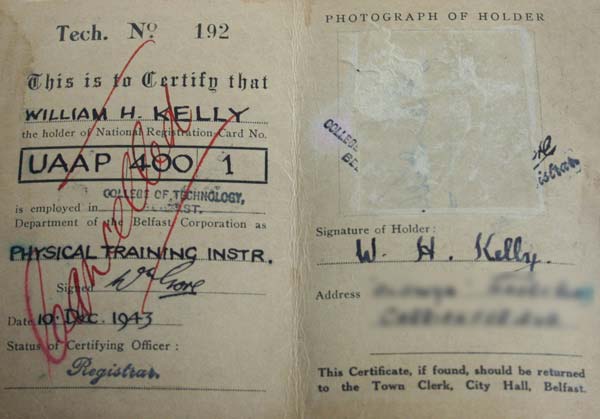 Tech. No. 192
This is to Certify that
WILLIAM H. KELLY
the holder of National Registration Card No.
UAAP 400 1
COLLEGE OF TECHNOLOGY,
is employed in BELFAST.
Department of the Belfast Corporation as
PHYSICAL TRAINING INSTR.
Signed Wm Gore
Date 10. Dec. 1943
Status of Certifying Officer :
Registrar.
Cancelled
PHOTOGRAPH OF HOLDER
COLLEGE
BEL
ore
istrar
Signature of Holder:
W. H. Kelly.
Address
This Certificate, if found, should be returned
to the Town Clerk, City Hall, Belfast.